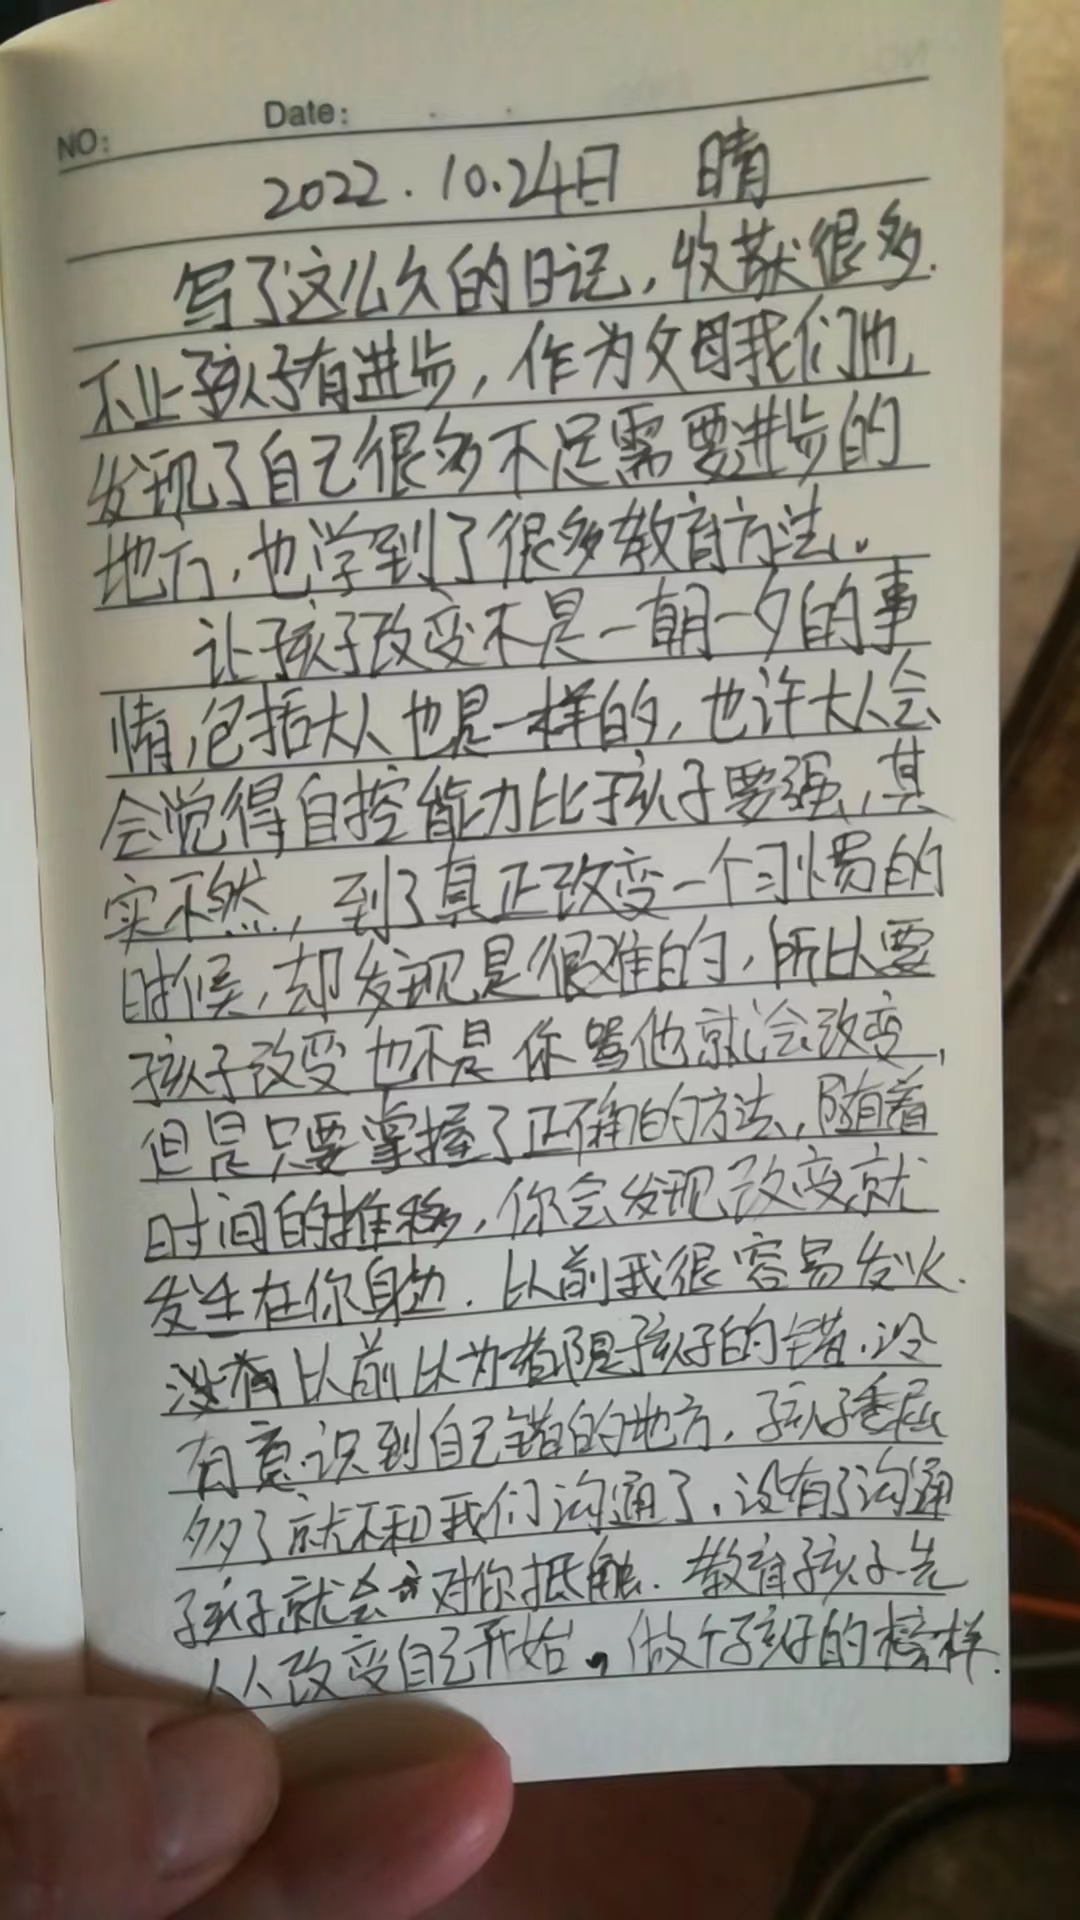 NO:
Date:
2022.10.24日 晴
写了这么久的日记,收获很多.
不止孩子有进步,作为父母我们也
发现了自己很多不足需要进步的
地方,也学到了很多教育方法。
让孩子改变不是一朝一夕的事
情,包括大人也是一样的,也许大人会
会觉得自控能力比孩子要强,其
实不然,到了真正改变一个习惯的
时候,却发现是很难的,所以要
孩子改变也不是你骂他就会改变,
但是只要掌握了正确的方法,随着
时间的推移,你会发现改变就
发生在你身边.以前我很容易发火.
没有以前以为都是孩子的错.没
有意识到自己错的地方,孩子委屈
多了就不和我们沟通了.没有了沟通
孩子就会对你抵触.教育孩子先
从改变自己开始。做个孩子的榜样.